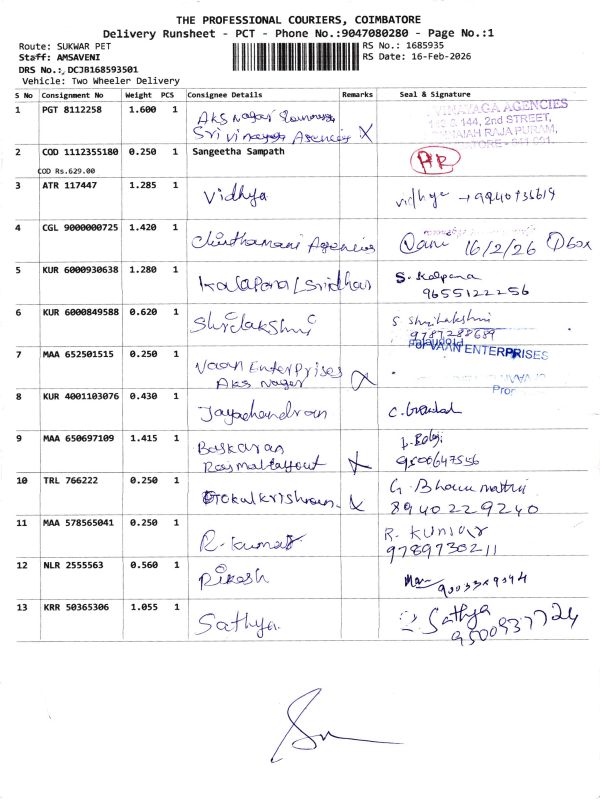 THE PROFESSIONAL COURIERS, COIMBATORE
Delivery Runsheet - PCT - Phone No.:9047080280 - Page No.:1
Route: SUKWAR PET
RS No.: 1685935
Staff: AMSAVENI
RS Date: 16-Feb-2026
DRS No.: DCJB168593501
Vehicle: Two Wheeler Delivery
S No Consignment No Weight PCS Consignee Details Remarks Seal & Signature
1 PGT 8112258 1.600 1 AKS Nagar
Agencies X
VINAYAGA AGENCIES
144, 2nd STREET,
RAJAPURAM,
2 COD 1112355180 0.250 1 Sangeetha Sampath
COD Rs.629.00
3 ATR 117447 1.285 1 Vidhya
4 CGL 9000000725 1.420 1 Chinthamani Agencies 16/2/26
5 KUR 6000930638 1.280 1 Kalapana / Sridhar S. Kalpana
9655122256
6 KUR 6000849588 0.620 1 Shrilakshmi S Shrilakshmi
9787288689
7 MAA 652501515 0.250 1 Vaan Enterprises
AKS Nagar
For VAAN ENTERPRISES
Pror
8 KUR 4001103076 0.430 1 Jayachandran
9 MAA 650697109 1.415 1 Baskaran
Rasmal layout X
9500647556
10 TRL 766222 0.250 1 Gokulkrishnan X G. Bhanumathi
8940229240
11 MAA 578565041 0.250 1 R. Kumar R. Kumar
9789730211
12 NLR 2555563 0.560 1 Rikesh
13 KRR 50365306 1.055 1 Sathya Sathya
9500937724